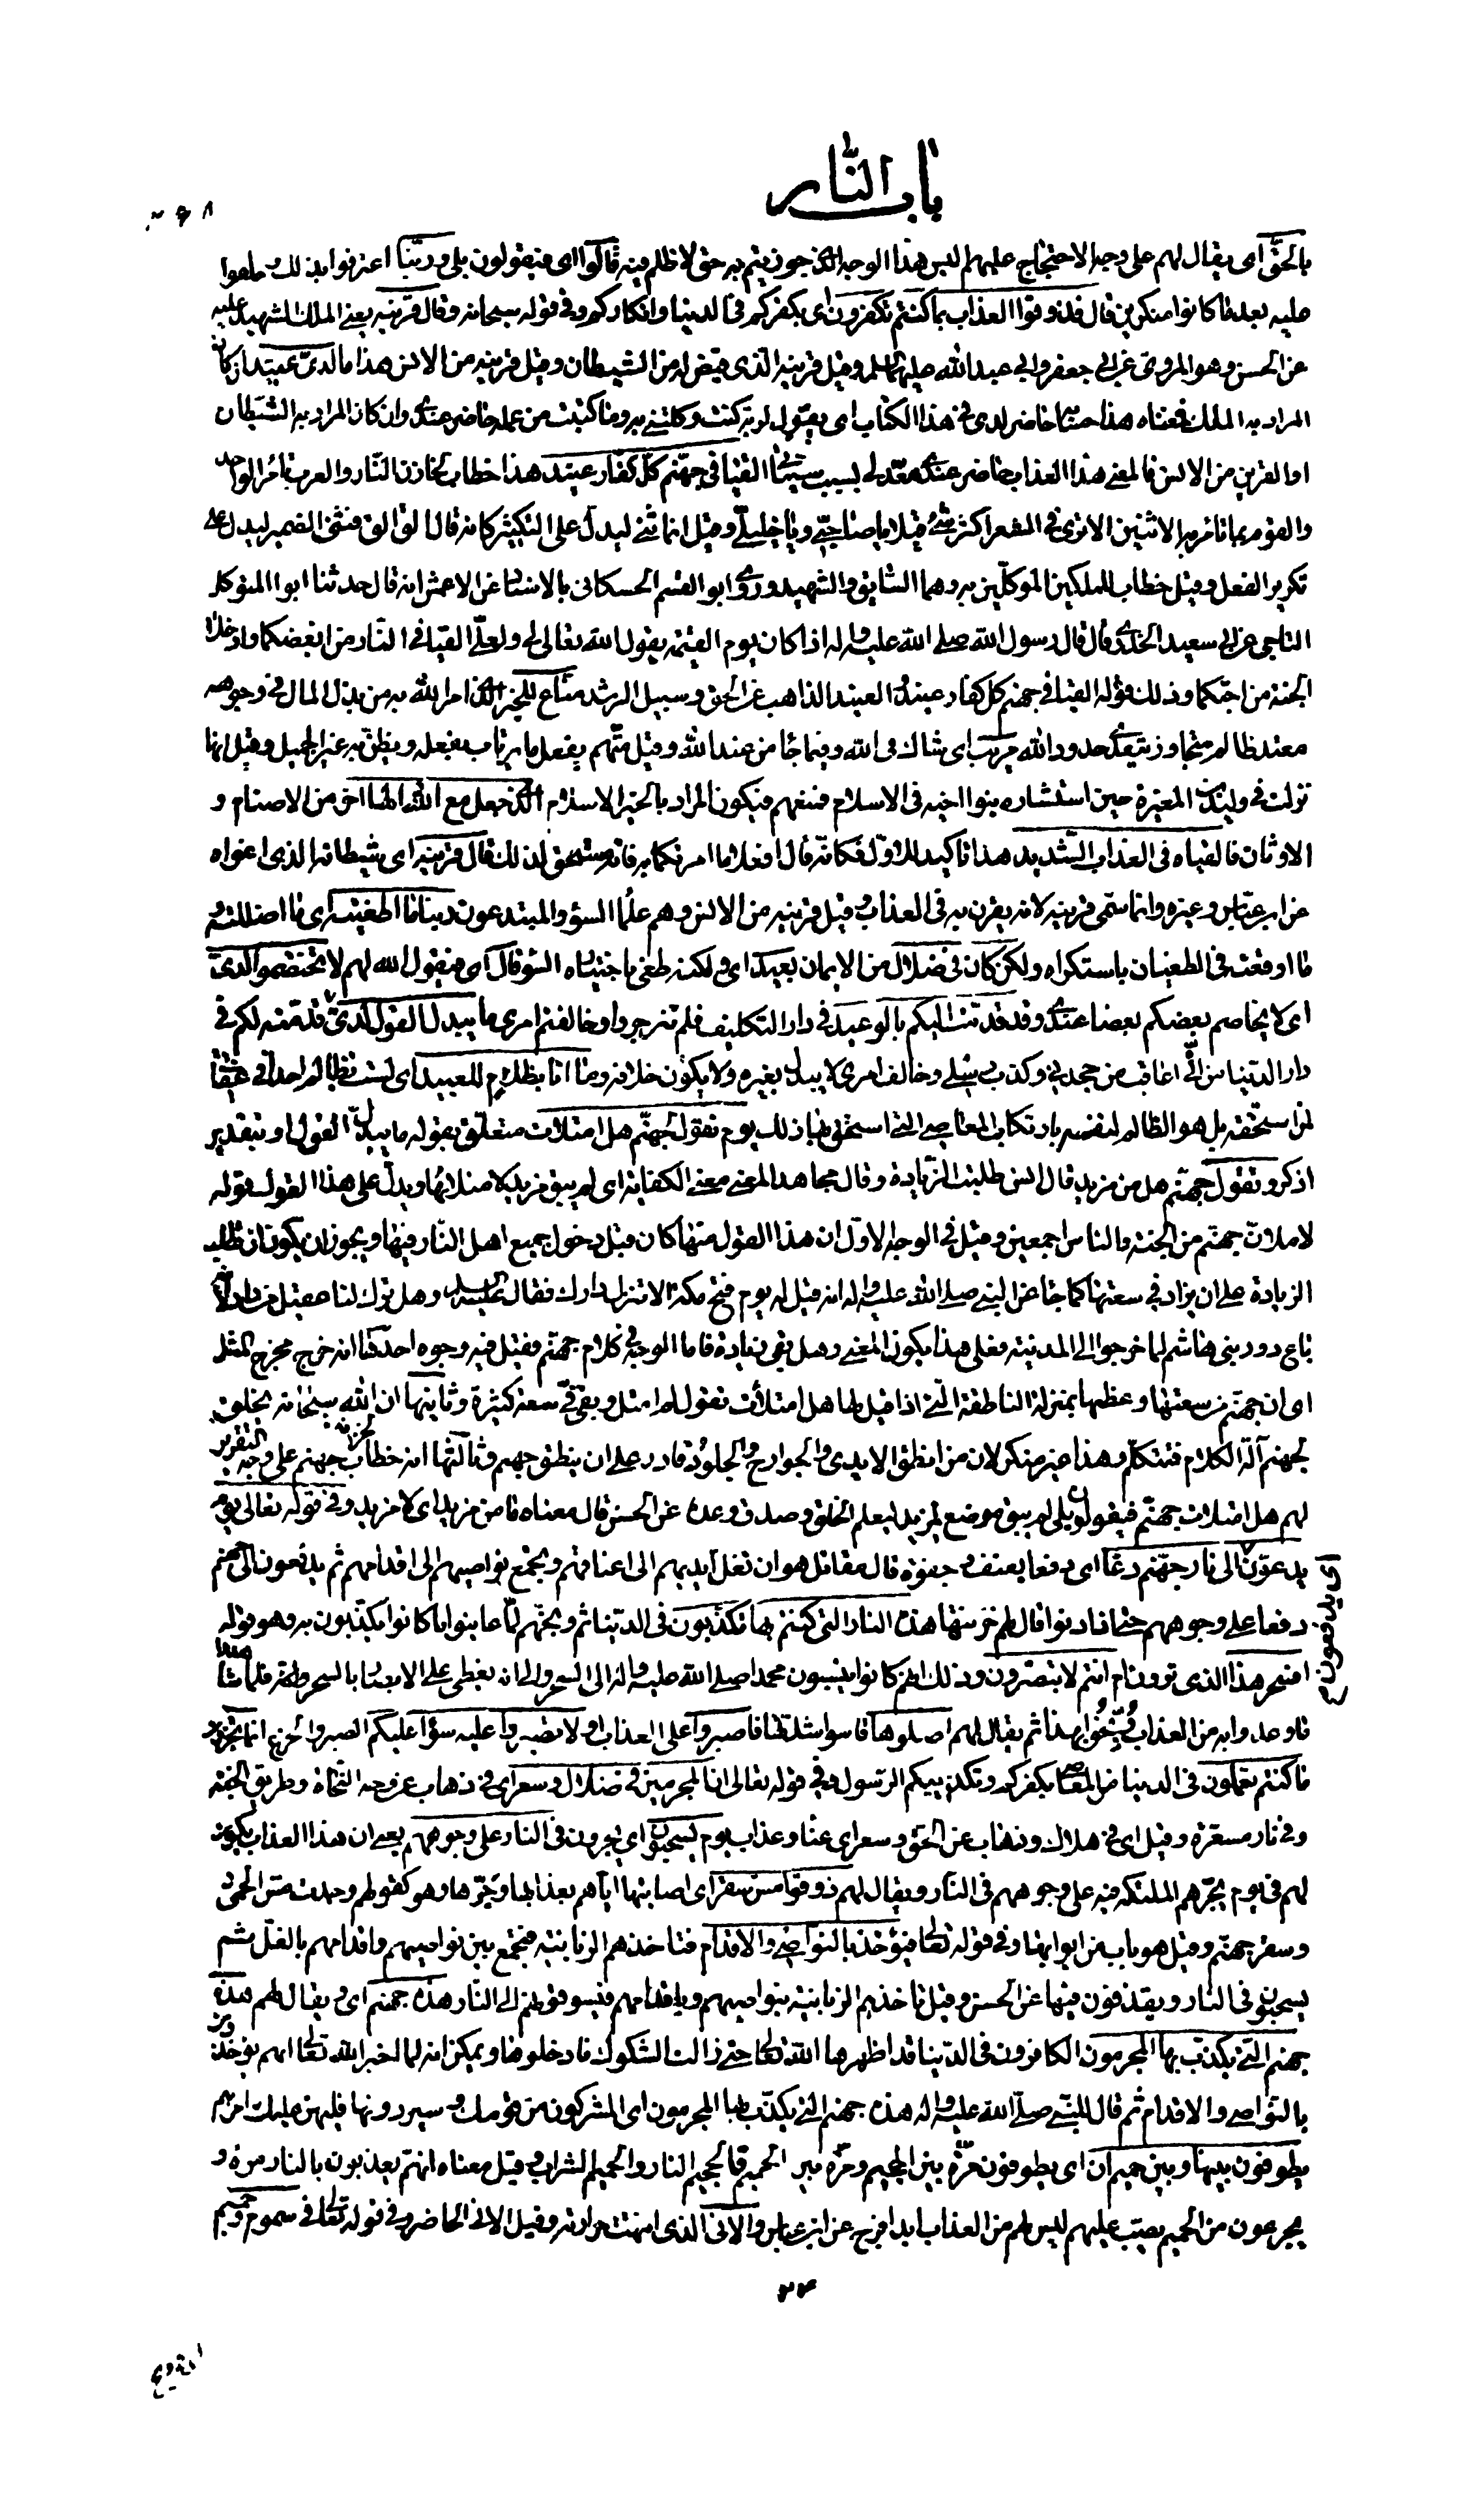 باب النار
بالحق اى يقال لهم على وجه الاحتجاج عليهم ليس هذا الوجه الذى جوزيتم به حق لا ظلم فيه قالوا اى فيقولون بلى وربنا اعترفوا بذلك وحلفوا
عليه بعد ما كانوا منكرين قال فذوقوا العذاب بما كنتم تكفرون اى بكفركم فى الدنيا وانكاركم وفى قوله سبحانه وقال قرينه يعنى الملك الشهيد عليه
عن الحسن وهو المروى عن ابى جعفر وابى عبد الله عليهما السلم وقيل قرينه الذى قيض له من الشيطان وقيل قرينه من الانس هذا ما لدى عتيد ان كان
المراد به الملك فمعناه هذا حسابه حاضر لدى فى هذا الكتاب اى يقول لربه كنت وكلتنى به وما كتبت من عمله حاضر عندى وان كان المراد به الشيطان
او القرين من الانس فالمعنى هذا العذاب حاضر عندى معد لى بسبب سيئاتى القيا فى جهنم كل كفار عنيد هذا خطاب لخازن النار والعرب تأمر الواحد
والقوم بما تامر به الاثنين الا ترى فى الشعر اكثر شئ قيلا يا صاحبى ويا خليلى وقيل انما ثنى ليدل على التكثير كانه قال الق الق فثنى الضمير ليدل على
تكرير الفعل وقيل خطاب للملكين الموكلين به وهما السايق والشهيد وروى ابو القسم الحسكانى بالاسناد عن الاعمش انه قال حدثنا ابو المتوكل
الناجى عن ابى سعيد الخدرى قال قال رسول الله صلى الله عليه واله اذا كان يوم القيمة يقول الله تعالى لى ولعلى القيا فى النار من ابغضكما وادخلا
الجنة من احبكما وذلك قوله القيا فى جهنم كل كفار عنيد والعنيد الذاهب عن الحق وسبيل الرشد مناع للخير الذى امر الله به من بذل المال فى وجوهه
معتد ظالم متجاوز يتعدى حدود الله مريب اى شاك فى الله وفيما جاء من عند الله وقيل متهم يفعل ما يرتاب بفعله ويظن به غير الجميل وقيل انها
نزلت فى وليد بن المغيرة حين استشاره بنوا اخيه فى الاسلام فمنعهم فيكون المراد بالخير الاسلام الذى جعل مع الله الها اخر من الاصنام و
الاوثان فالقياه فى العذاب الشديد هذا تاكيد للاول فكانه قال افعلا ما امرتكما به فانه مستحق لذلك قال قرينه اى شيطانه الذى اغواه
عن ابن عباس وغيره وانما سمى قرينه لانه يقرن به فى العذاب وقيل قرينه من الانس وهم علماء السوء والمبتدعون ربنا ما اطغيته اى ما اضللته و
ما اوقعته فى الطغيان باستكراه ولكن كان فى ضلال من الايمان بعيد اى ولكنه طغى باختياره السوء قال اى فيقول الله لهم لا تختصموا لدى
اى لا يخاصم بعضكم بعضا عندى وقد قدمت اليكم بالوعيد فى دار التكليف فلم تنزجروا وخالفتم امرى ما يبدل القول لدى قد قدمته لكم فى
دار الدنيا من انى اعاقب من جحدنى وكذب رسلى وخالف امرى لا يبدل بغيره ولا يكون خلافه وما انا بظلام للعبيد اى لست بظالم احدا فى عقابى
لمن استحقه بل هو الظالم لنفسه بارتكاب المعاصى التى استحق بها ذلك يوم نقول لجهنم هل امتلات متعلق بقوله ما يبدل القول او بتقدير
اذكر وتقول جهنم هل من مزيد قال انس طلبت الزيادة وقال مجاهد المعنى معنى الكفاية اى لم يبق مزيد لامتلائها ويدل على هذا القول قوله
لاملان جهنم من الجنة والناس اجمعين وقيل فى الوجه الاول ان هذا القول منها كان قبل دخول جميع اهل النار فيها ويجوز ان يكون ان تطلب
الزيادة على ان يزاد فى سعتها كما جاء عن النبى صلى الله عليه واله انه قيل له يوم فتح مكة الا تنزل دارك فقال عليه السلم وهل ترك لنا عقيل من دار لانه
باع دور بنى هاشم لما خرجوا الى المدينة فعلى هذا يكون المعنى وهل بقى زيادة فاما الوجه فى كلام جهنم فقيل فيه وجوه احدها انه خرج مخرج المثل
اى ان جهنم من سعتها وعظمها بمنزلة الناطقة التى اذا قيل لها هل امتلأت تقول لم امتل وبقى فى سعة كثيرة وثانيها ان الله سبحانه يخلق
لجهنم آلة الكلام فتتكلم وهذا غير منكر لان من انطق الايدى والجوارح والجلود قادر على ان ينطق جهنم وثالثها انه خطاب لخزنة جهنم على وجه التقرير
لهم هل امتلات جهنم فيقولون بلى لم يبق موضع لمزيد ليعلم الخلق صدق وعده عن الحسن قال معناه ما من مزيد اى لا مزيد وفى قوله تعالى يوم
يدعون الى نار جهنم دعا اى دفعا بعنف وجفوة قال مقاتل هو ان تغل ايديهم الى اعناقهم ويجمع نواصيهم الى اقدامهم ثم يدفعون الى جهنم
اى يدفعون
دفعا على وجوههم حتى اذا دنوا قال لهم خزنتها هذه النار التى كنتم بها تكذبون فى الدنيا ثم وبخهم لما عاينوا ما كانوا يكذبون به وهو قوله
افسحر هذا الذى ترون ام انتم لا تبصرون وذلك انهم كانوا ينسبون محمدا صلى الله عليه واله الى السحر والى انه يغطى على الابصار بالسحر فلما شاهدوا
ما وعدوا به من العذاب وبخوا بهذا ثم يقال لهم اصلوها قاسوا شدتها فاصبروا على العذاب او لا تصبروا عليه سواء عليكم الصبر والجزع انما تجزون
ما كنتم تعملون فى الدنيا من المعاصى بكفركم وتكذيبكم الرسول وفى قوله تعالى ان المجرمين فى ضلال وسعر اى فى ذهاب عن وجه النجاة وطريق الجنة
وفى نار مسعرة وقيل اى فى هلاك وذهاب عن الحق وسعر اى عناء وعذاب يوم يسحبون اى يجرون فى النار على وجوههم يعنى ان هذا العذاب يكون
لهم فى يوم يجرهم الملئكة فيه على وجوههم فى النار ويقال لهم ذوقوا مس سقر اى اصابتها اياهم بعذابها وحرها وهو كقولهم وجدت مس الحمى
وسقر جهنم وقيل هو باب من ابوابها وفى قوله تعالى فيؤخذ بالنواصى والاقدام فتاخذهم الزبانية فتجمع بين نواصيهم واقدامهم بالغل ثم
يسحبون فى النار ويقذفون فيها عن الحسن وقيل تاخذهم الزبانية بنواصيهم وباقدامهم فيسوقونهم الى النار هذه جهنم اى ويقال لهم هذه
جهنم التى يكذب بها المجرمون الكافرون فى الدنيا قد اظهرها الله تعالى حتى زالت الشكوك فادخلوها ويمكن انه لما اخبر الله تعالى انهم يؤخذون
بالنواصى والاقدام ثم قال للنبى صلى الله عليه واله هذه جهنم التى يكذب بها المجرمون اى المشركون من قومك وسيردونها فليهن عليك امرهم
يطوفون بينها وبين حميم آن اى يطوفون مرة بين الجحيم ومرة بين الحميم فالجحيم النار والحميم الشراب وقيل معناه انهم يعذبون بالنار مرة و
يجرعون من الحميم يصب عليهم ليس لهم من العذاب ابدا فرج عن ابن عباس والآنى الذى انتهت حرارته وقيل الانى الحاضر وفى قوله تعالى فى سموم وحميم